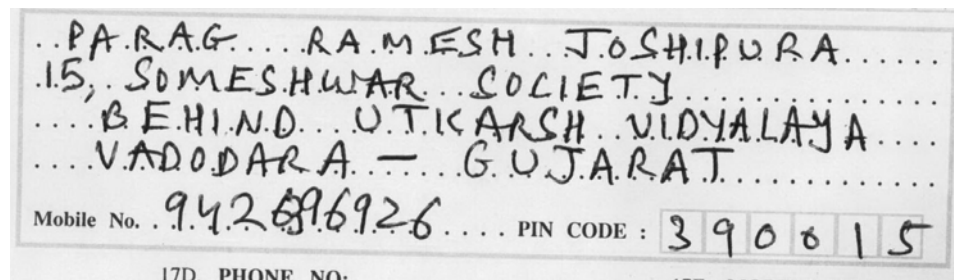 PARAG RAMESH JOSHIPURA
15, SOMESHWAR SOCIETY
BEHIND UTKARSH VIDYALAYA
VADODARA — GUJARAT
Mobile No. PIN CODE : 390015
17D PHONE NO: